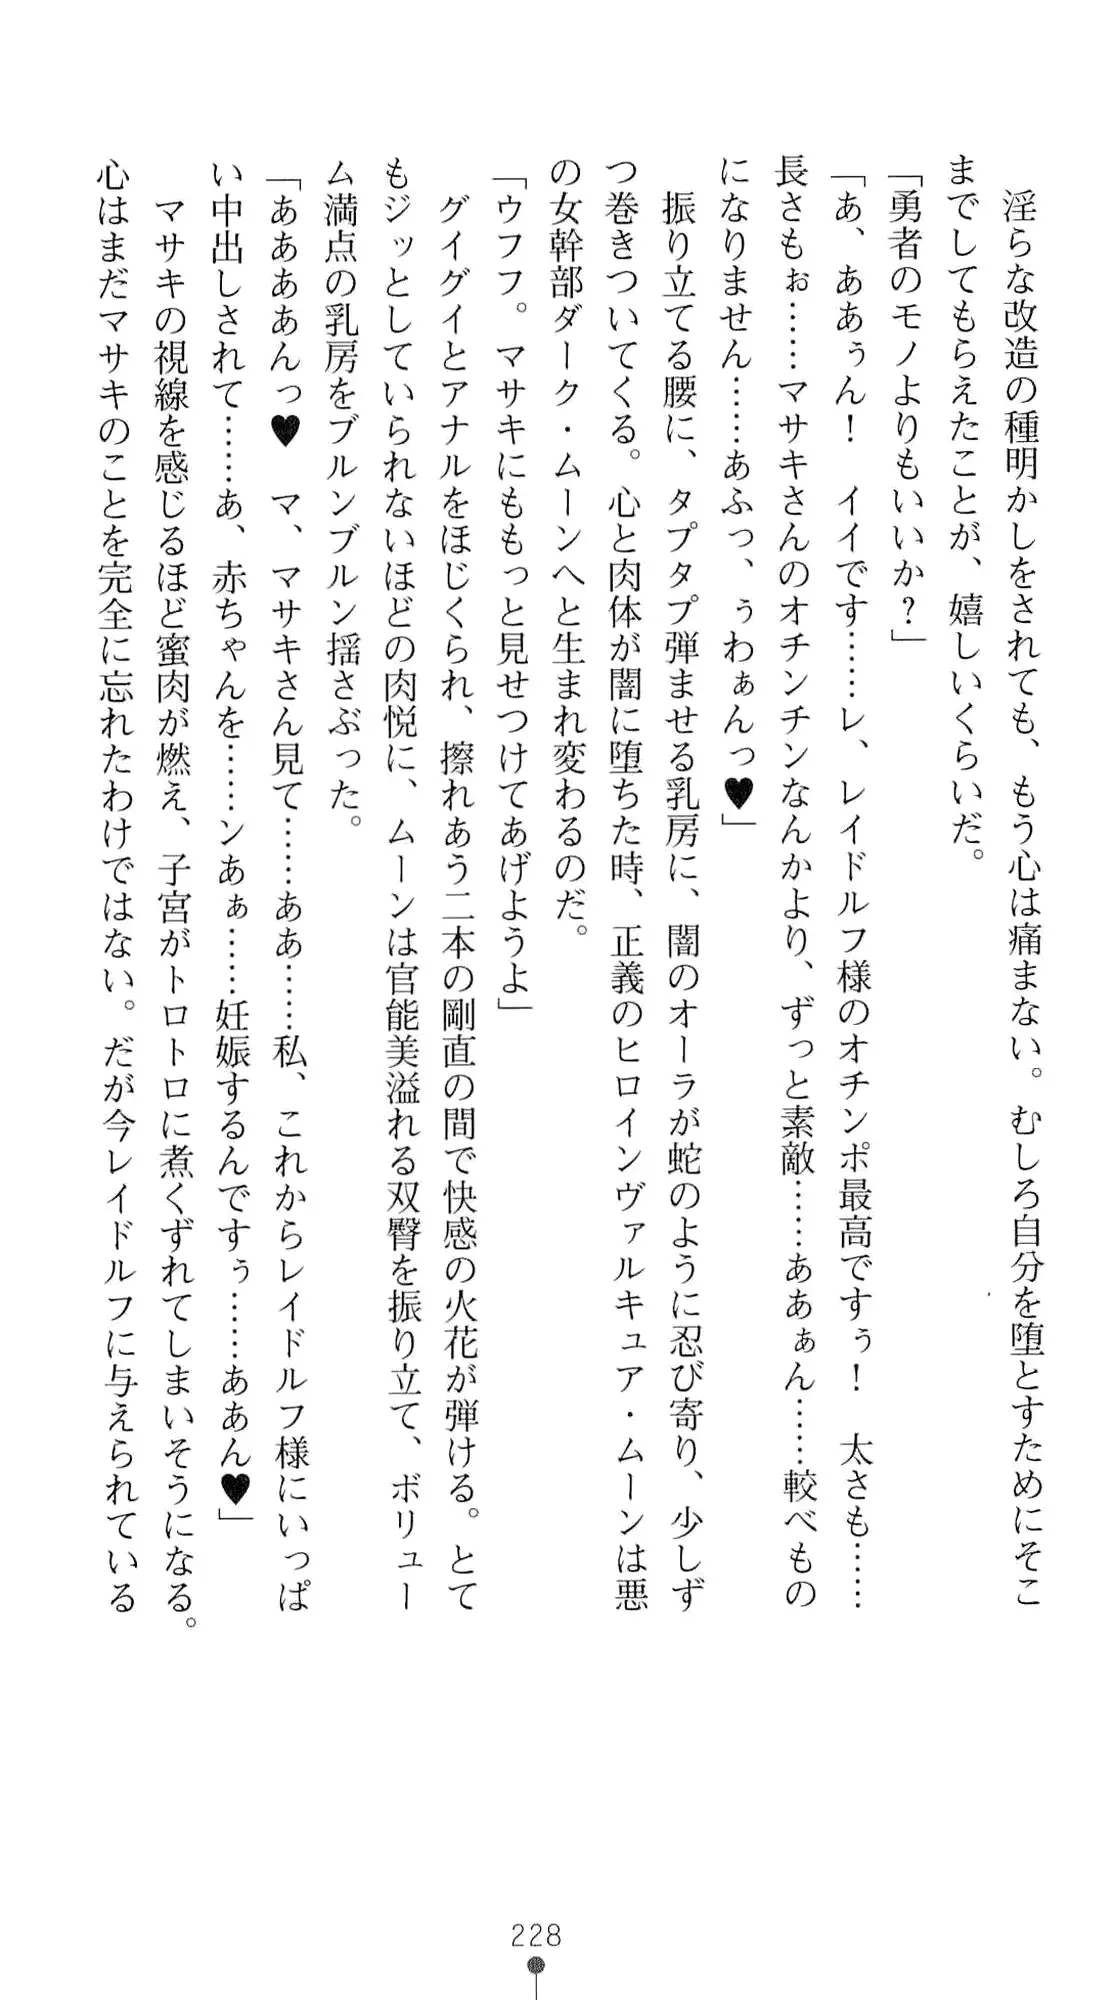 淫らな改造の種明かしをされても、もう心は痛まない。むしろ自分を堕とすためにそこ
までしてもらえたことが、嬉しいくらいだ。
「勇者のモノよりもいいか？」
「あ、ああぅん！　イイです……レ、レイドルフ様のオチンポ最高ですぅ！　太さも……
長さもぉ……マサキさんのオチンチンなんかより、ずっと素敵……ああぁん……較べもの
になりません……あふっ、ぅわぁんっ♥」
振り立てる腰に、タプタプ弾ませる乳房に、闇のオーラが蛇のように忍び寄り、少しず
つ巻きついてくる。心と肉体が闇に堕ちた時、正義のヒロインヴァルキュア・ムーンは悪
の女幹部ダーク・ムーンへと生まれ変わるのだ。
「ウフフ。マサキにももっと見せつけてあげようよ」
グイグイとアナルをほじくられ、擦れあう二本の剛直の間で快感の火花が弾ける。とて
もジッとしていられないほどの肉悦に、ムーンは官能美溢れる双臀を振り立て、ボリュー
ム満点の乳房をブルンブルン揺さぶった。
「ああああんっ♥　マ、マサキさん見て……ああ……私、これからレイドルフ様にいっぱ
い中出しされて……あ、赤ちゃんを……ンあぁ……妊娠するんですぅ……ああん♥」
マサキの視線を感じるほど蜜肉が燃え、子宮がトロトロに煮くずれてしまいそうになる。
心はまだマサキのことを完全に忘れたわけではない。だが今レイドルフに与えられている
228